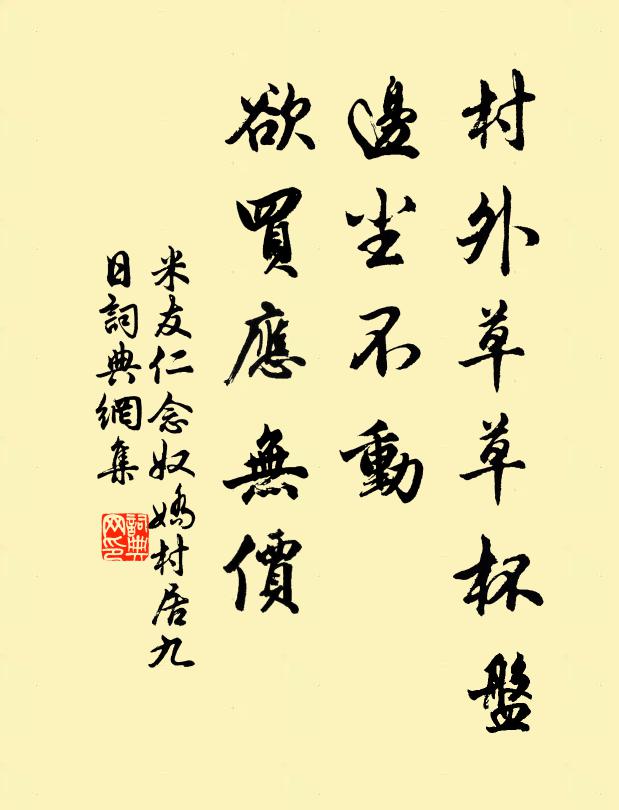 村外草草杯盤
邊尘不動
欲買應無價
米友仁念奴嬌村居九
日詞典網集
詞典网印